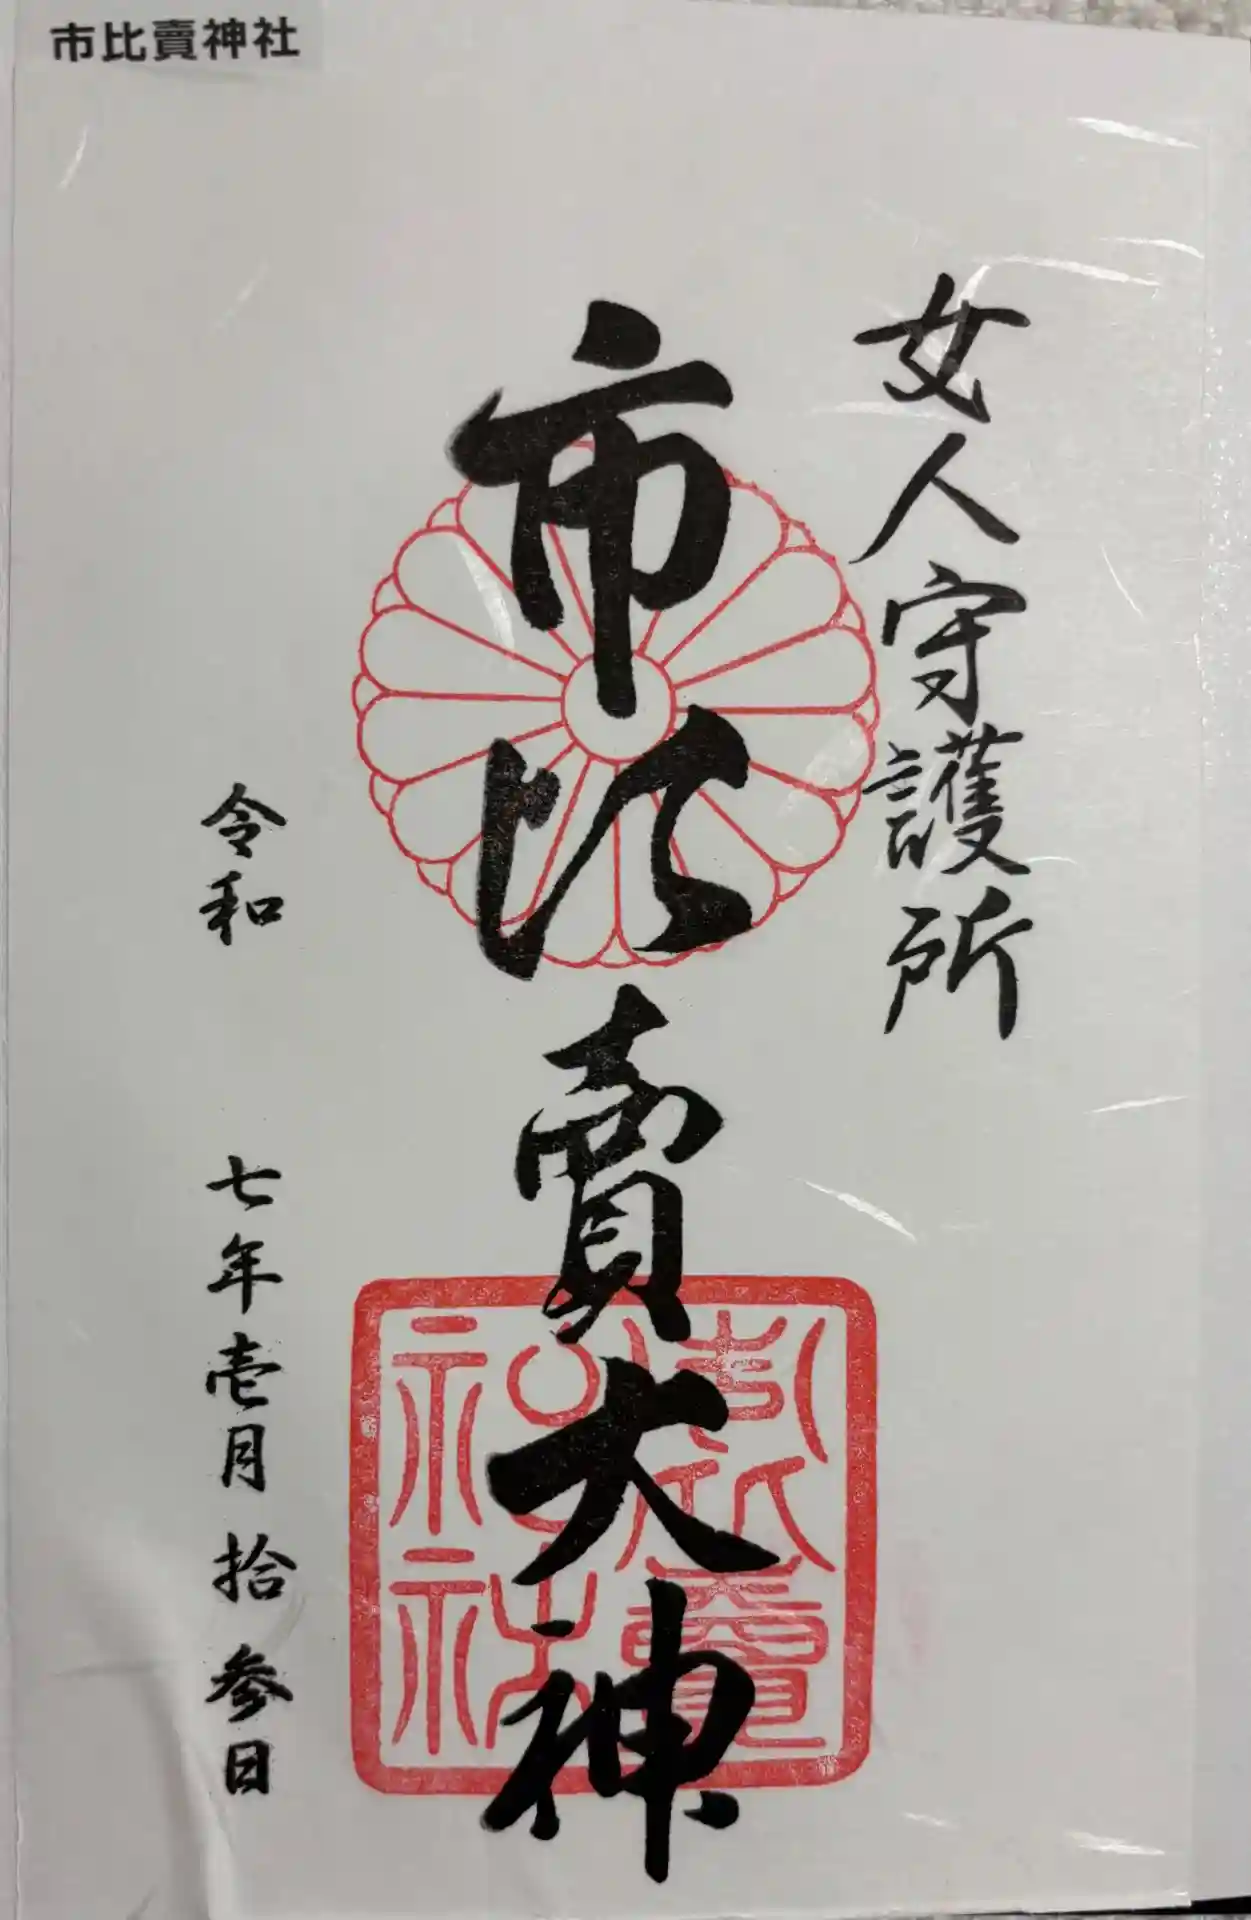 市比賣神社
女人守護所
市比賣大神
令和 七年壱月拾参日